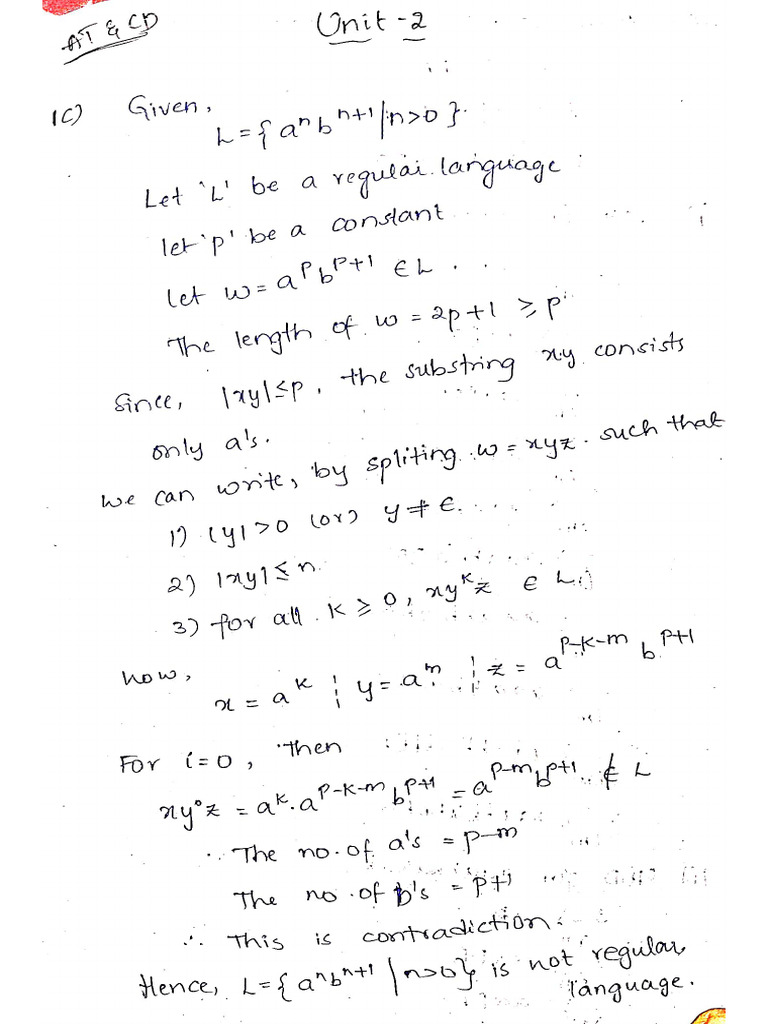 AT & CD
Unit-2
1c) Given,
L = { aⁿ bⁿ⁺¹ / n>0 }.
Let 'L' be a regular language
let 'p' be a constant
let w = aᵖ bᵖ⁺¹ ∈ L.
The length of w = 2p+1 ≥ p
Since, |xy| ≤ p, the substring xy consists
only a's.
We can write, by spliting w = xyz such that
1) |y| > 0 (or) y ≠ ϵ.
2) |xy| ≤ n.
3) for all k ≥ 0, xyᵏz ∈ L.
now,
x = aᵏ ¦ y = aᵐ ¦ z = aᵖ⁻ᵏ⁻ᵐ bᵖ⁺¹
For i=0, then
xy⁰z = aᵏ.aᵖ⁻ᵏ⁻ᵐ bᵖ⁺¹ = aᵖ⁻ᵐ bᵖ⁺¹ ∉ L
The no. of a's = p-m
The no. of b's = p+1
∴ This is contradiction.
Hence, L = { aⁿ bⁿ⁺¹ / n>0 } is not regular
language.